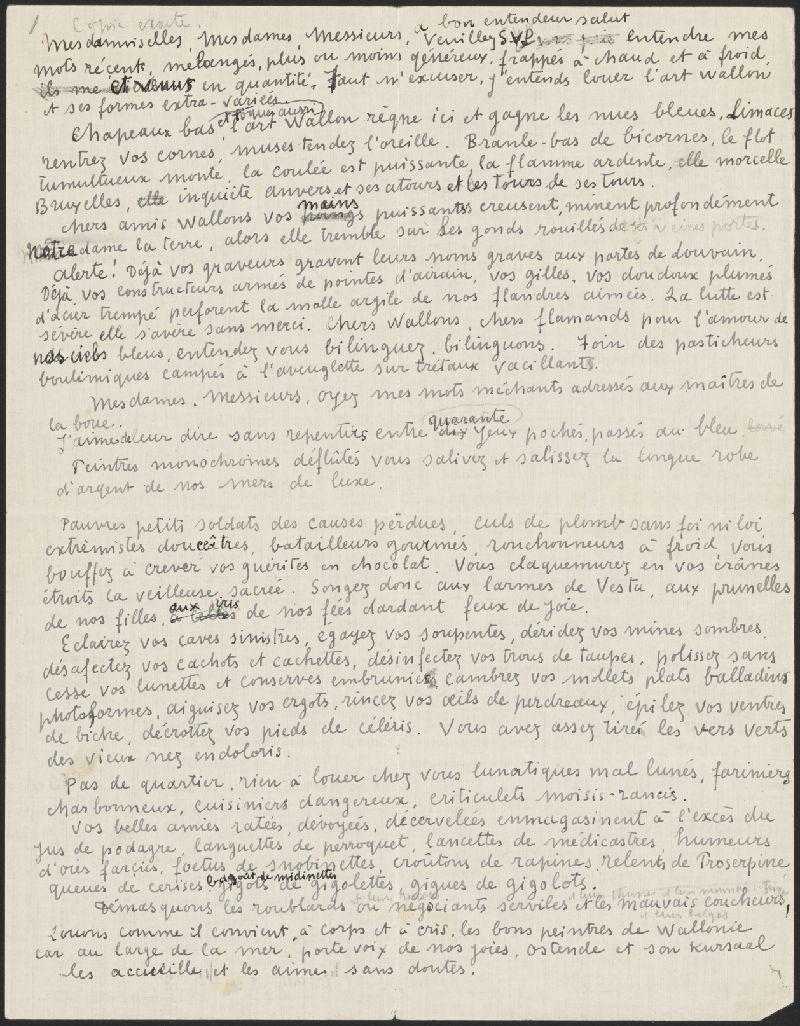 Copie exacte.
à bon entendeur salut
Mesdamoiselles, Mesdames Messieurs, Veuillez SVP entendre mes
mots récents, mélangés, plus ou moins généreux, frappés à chaud et à froid,
en quantité. Faut m'excuser, j'entends louer l'art wallon
et ses formes extra-variées
et toques aussi
Chapeaux bas l'art Wallon règne ici et gagne les nues bleues. Limaces
rentrez vos cornes, muses tendez l'oreille. Branle-bas de bicornes, le flot
tumultueux monte, la coulée est puissante, la flamme ardente, elle morcelle
Bruxelles, elle inquiète anvers et ses atours et les tours de ses tours.
chers amis Wallons vos mains puissantes creusent, minent profondément
Notre dame la terre, alors elle tremble sur ses gonds rouillés de ses vieilles portes.
Alerte! Déjà vos graveurs gravent leurs noms graves aux portes de Louvain,
Déjà, vos constructeurs armés de pointes d'airain, vos gilles, vos doudoux plumés
d'azur trempé perforent la molle argile de nos flandres aimées. La lutte est
sévère elle s'avère sans merci. Chers Wallons, chers flamands pour l'amour de
nos ciels bleus, entendez vous bilinguez, bilinguons. Foin des pasticheurs
boulimiques campés à l'aveuglette sur trétaux vacillants.
Mesdames. Messieurs, oyez mes mots méchants adressés aux maîtres de
la boue.
J'aime à leur dire sans repentirs entre quarante yeux pochés, passés au bleu
Peintres monochromes déflûtés vous salivez et salissez la longue robe
d'argent de nos mers de luxe.
Pauvres petits soldats des causes perdues, culs de plomb sans foi ni loi,
extrémistes douceâtres, batailleurs gourmés, ronchonneurs à froid, vous
bouffez à crever vos guérites en chocolat. Vous claquemurez en vos crânes
étroits la veilleuse sacrée. Songez donc aux larmes de Vesta, aux prunelles
de nos filles, aux iris de nos fées dardant feux de joie.
Eclairez vos caves sinistres, égayez vos soupentes, déridez vos mines sombres,
désafectez vos cachots et cachettes, désinfectez vos trous de taupes, polissez sans
cesse vos lunettes et conserves embrunies, cambrez vos mollets plats balladins
photoformes, aiguisez vos ergots, rincez vos œils de perdreaux, épilez vos ventres
de biche, décrottez vos pieds de céleris. Vous avez assez tiré les vers verts
des vieux nez endoloris.
Pas de quartier, rien à louer chez vous lunatiques mal lunés, fariniers
charbonneux, cuisiniers dangereux, criticulets moisis-rancis.
Vos belles amies ratées, dévoyées, décervelées enmagasinent à l'excès du
jus de podagre, languettes de perroquet, lancettes de médicastres, humeurs
d'oies farcies, foetus de snobinettes, croûtons de rapines, relents de Proserpine
queues de cerises bagoût de midinettes gigots de gigolettes, gigues de gigolots.
Démasquons les roublards ou négociants serviles et les mauvais coucheurs,
Louons comme il convient, à corps et à cris, les bons peintres de Wallonie
car au large de la mer, porte voix de nos joies, Ostende et son Kursaal
les accueille et les aime sans doutes.